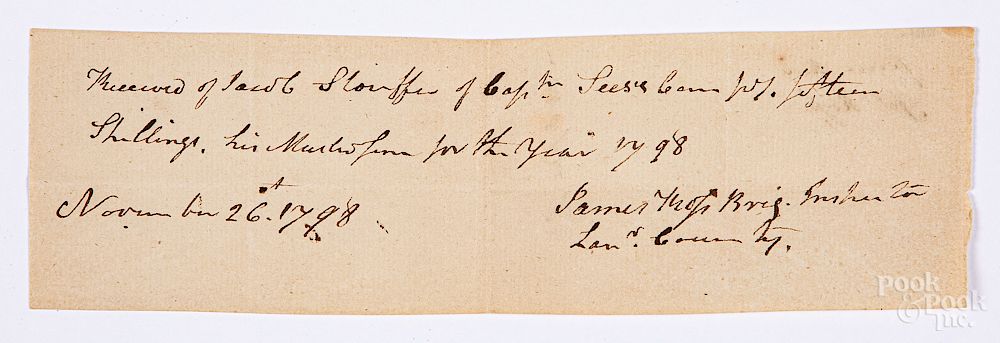 Received of Jacob Stouffer of Captn Sees's Comp'y fifteen
Shillings, his Muster fine for the Year 1798
November 26.t 1798
James Ross Brig. Inspector
Lanr. County.
POOK
& POOK
Inc.